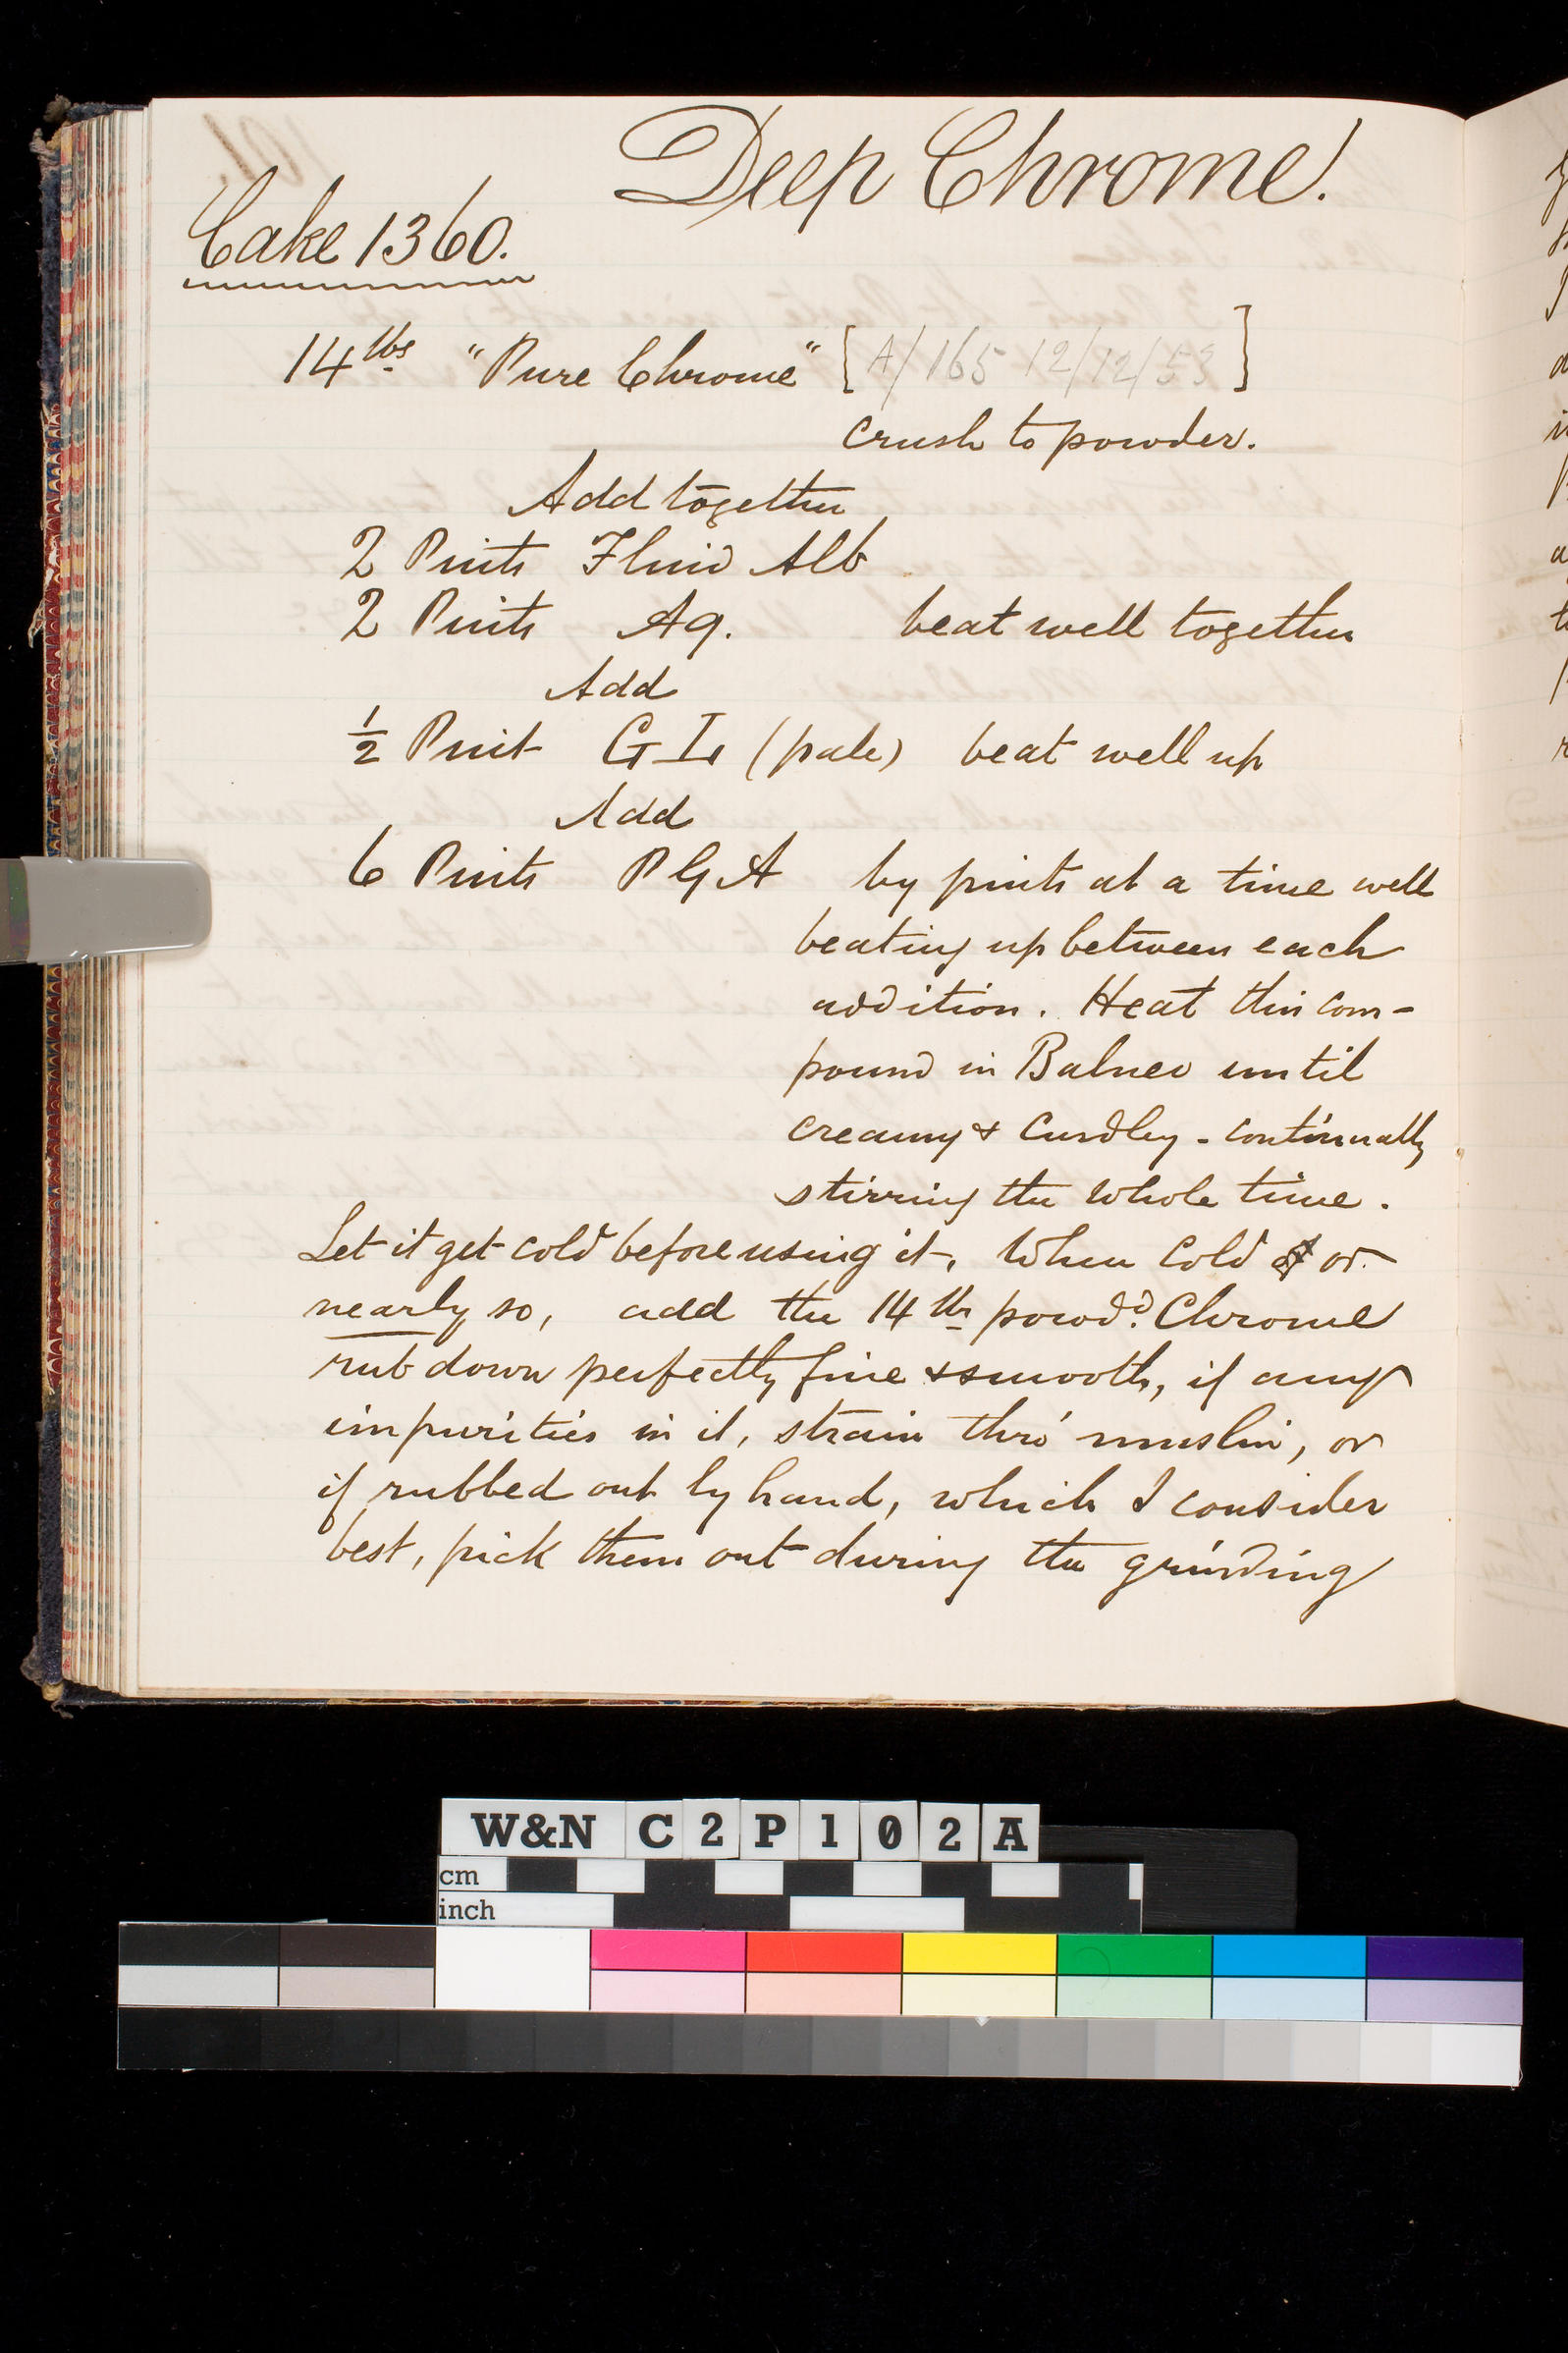 Deep Chrome.
Cake 1360.
14 lbs "Pure Chrome" [A/165 12/12/53]
crush to powder.
Add together
2 Pints Fluid Alb
2 Pints Aq. beat well together
Add
½ Pint G I (pale) beat well up
Add
6 Pints P G A by pints at a time well
beating up between each
addition. Heat this com-
pound in Balneo until
creamy & Curdley - continually
stirring the whole time.
Let it get cold before using it, When cold or
nearly so, add the 14 lbs powdd. Chrome
rub down perfectly fine & smooth, if any
impurities in it, strain thro' muslin, or
if rubbed out by hand, which I consider
best, pick them out during the grinding
W&N C2P102A
cm
inch